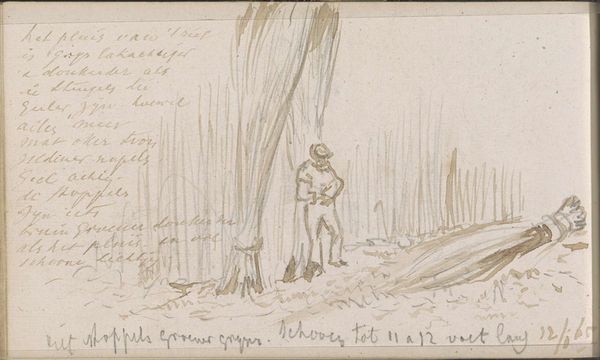 het pluis van 't riet
is grijs lakachtiger
& donkerder als
de stengels die
geeler zijn hoewel
alles meer
mat oker
geel achtig
de stoppels
zijn iets
bruin groener donkerder
als het pluis en ook
schoone
riet stoppels groener grijzer. Schooven tot 11 a 12 voet lang 12/1 65